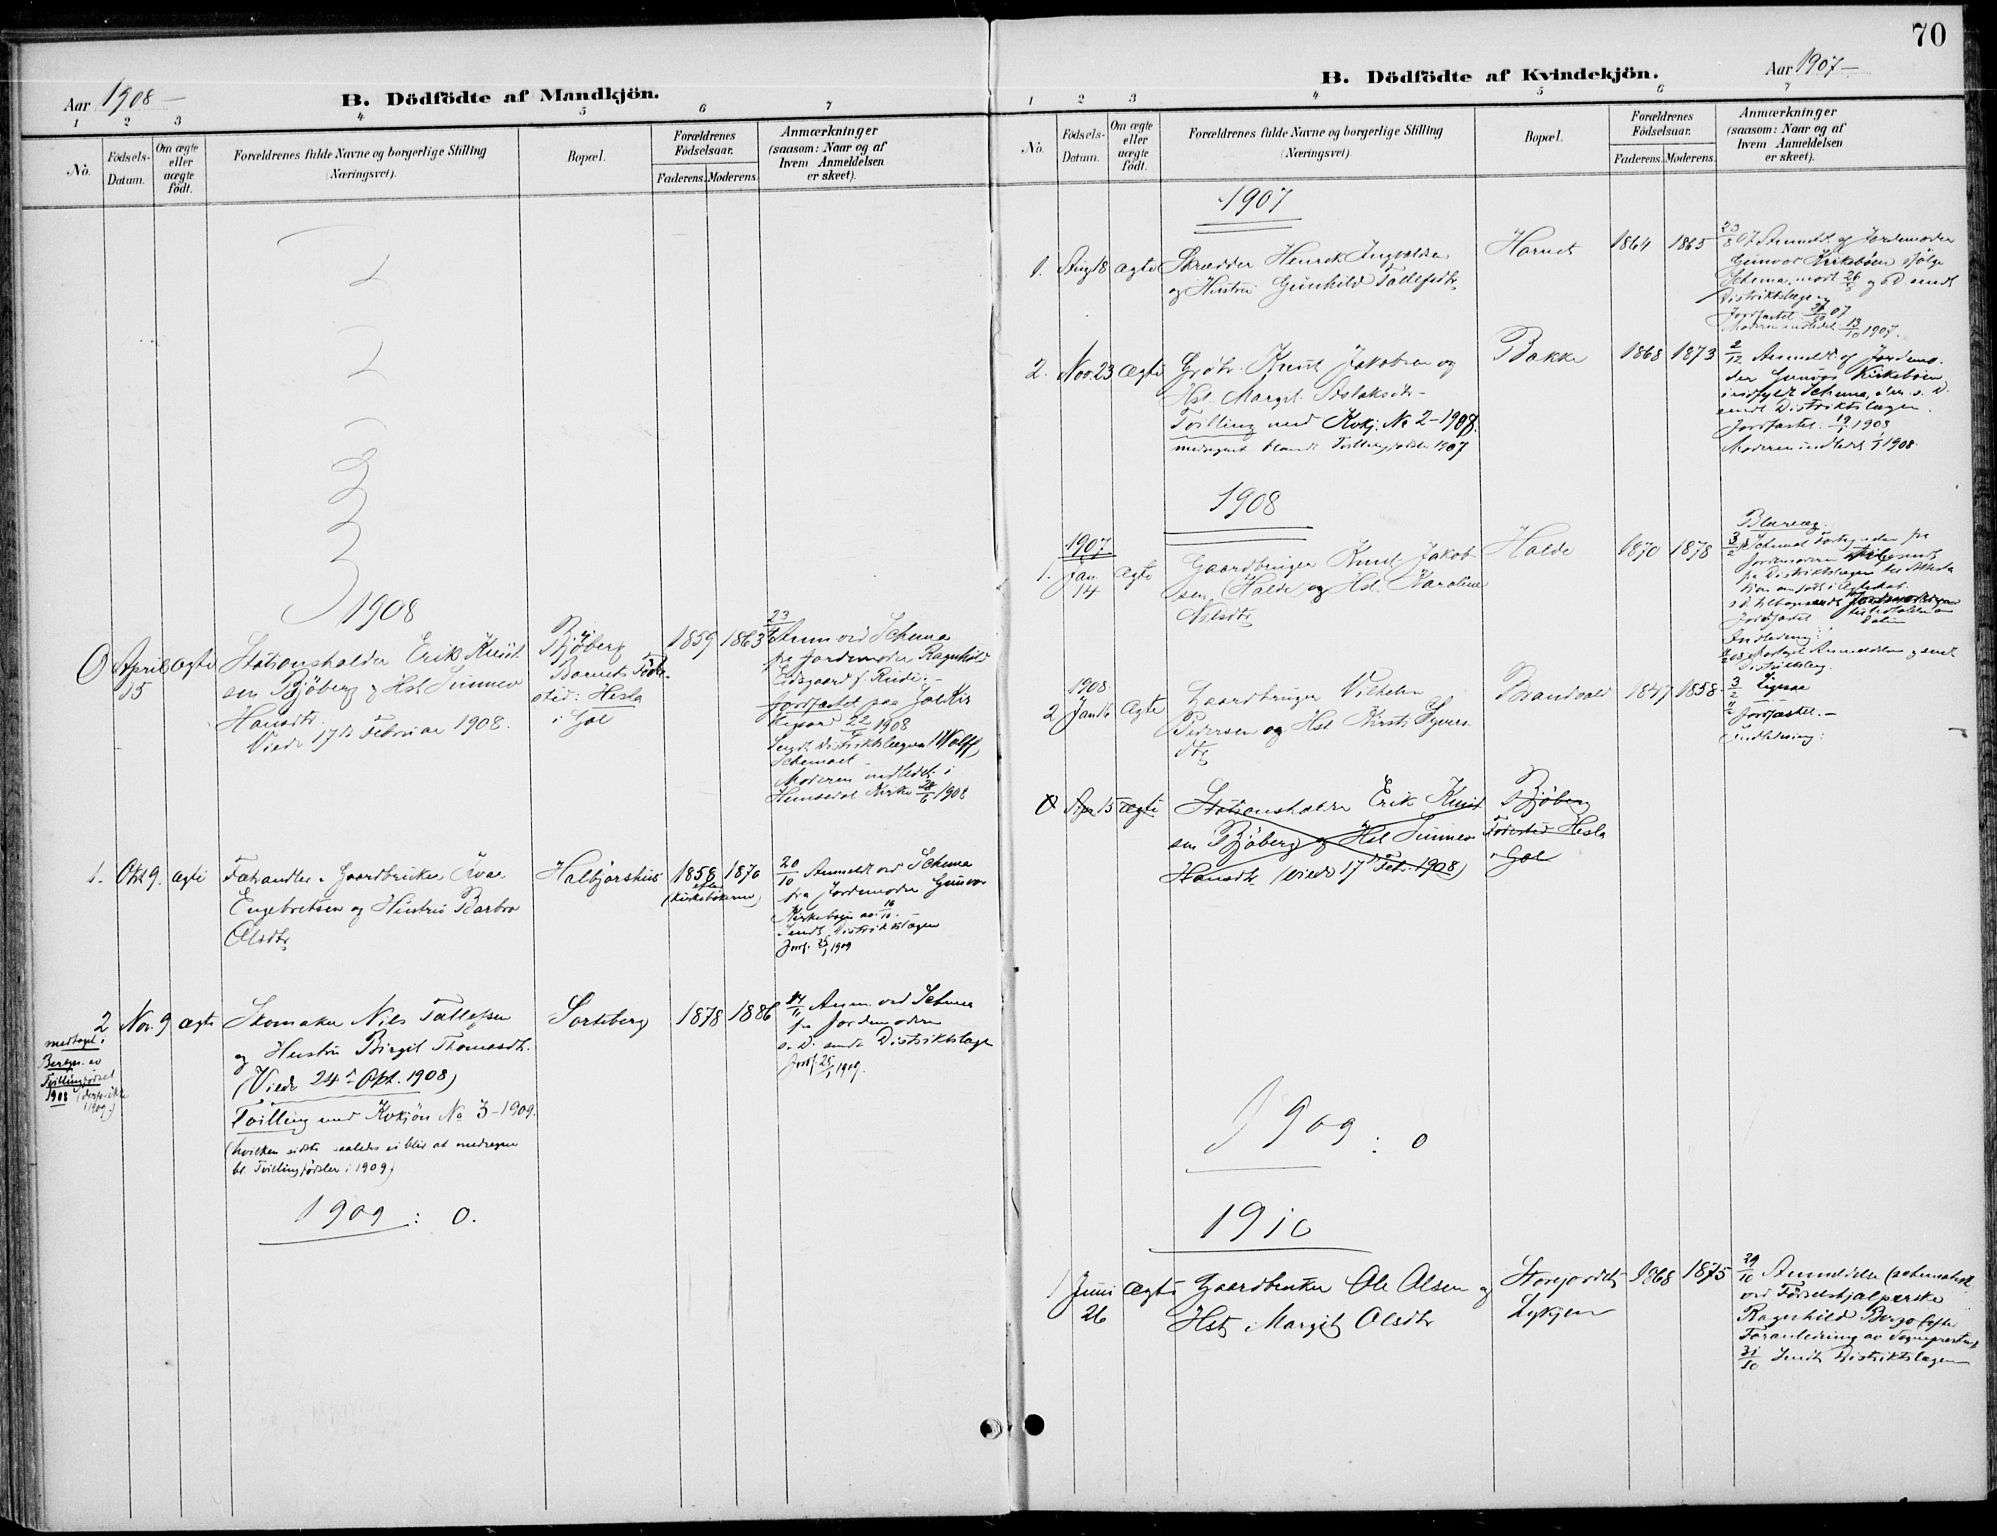 Aar 1908 –
B. Dödfödte af Mandkjön.
1 2 3 4 5 6 7
No.
Födsels-
Datum.
Om ægte
eller
uægte
födt.
Forældrenes fulde Navne og borgerlige Stilling
(Næringsvei).
Bopæl.
Forældrenes
Födselsaar.
Faderens. Moderens.
Anmærkninger
(saasom: Naar og af
hvem Anmeldelsen
er skeet).
1908
0 April 15 ægte
Stationsholder Erik Knut
sen Bjöberg og Hst Sünnev
Hansdtr.
Viede 17de Februar 1908.
Bjöberg
Barnets Föde-
sted: Hesla
i Gol
1859 1863
23/4 Anm ved Schema
fra Jordemoder Ragnhild
Jordfæstet paa Gol Kir
kegaard 22/4 1908
Sendt Distriktslægen Wolff
Schemaet –
Moderen indledet i
Hemsedal Kirke 28/6 1908
1. Okt 9. ægte
Fæhandler & Gaardbruker Ivar
Engebretsen og Hustru Barbro
Olsdtr
Halbjørshus
1858 1870
efter
(Kirkebökerne)
20/10 Anmeldt ved Schema
fra Jordemoder Gunvor
Kirkebøen
Sendt Distriktslægen
Jordf. 25/1 1909
2 Nov. 9 ægte
medtaget i
Tvillingfødsel
1908 (derfor ikke
i 1909)
Skomaker Nils Tollefsen
og Hustru Birgit Thomasdtr.
(Viede 24de Okt. 1908)
Tvilling med Kvkjön No 3 - 1909.
(hvilken sidste saaledes ei blir at medregne
bl. Tvillingfødsler i 1909)
Sorteberg
1878 1886
14/11 Anm. ved Schema
fra Jordemoderen
s. D. sendt Distriktslægen
Jordf. 25/1 1909.
1909 : 0.
70
B. Dödfödte af Kvindekjön.
Aar 1907 –
1 2 3 4 5 6 7
No.
Födsels-
Datum.
Om ægte
eller
uægte
födt.
Forældrenes fulde Navne og borgerlige Stilling
(Næringsvei).
Bopæl.
Forældrenes
Födselsaar.
Faderens. Moderens.
Anmærkninger
(saasom: Naar og af
hvem Anmeldelsen
er skeet).
1907
1. Aug 18 ægte
Skrædder Henrik Ingvaldsen
og Hustru Gunhild Tollefsdtr.
1864 1865
23/8 07 Anmeldt af Jordemoder
Gunvor Kirkebøen ifølge
Schema, modt 26/8 og s D. sendt
Distriktslægen
Moderen indledet 13/10 1907.
2. Nov. 23 ægte
Grdbr. Knut Jakobsen og
Hst. Margit Aslaksdtr
Tvilling med Kvkj. No 2 - 1908.
medregnet blandt Tvillingfødsler 1907
Bakke
1868 1873
2/12 Anmeldt af Jordemo-
der Gunvor Kirkebøen
indfyldt Schema, s. D.
sendt Distriktslægen.
Jordfæstet 19/1 1908
Moderen indledet 1/1 1908
1908
1907
1. Jan 14 ægte
Gaardbruger Knut Jakob-
sen Halde og Hst. Karoline
Nilsdtr
Halde
1870 1878
Jordfæstet
Indledning:
1908
2 Jan 16 ægte
Gaardbruger Vilhelm
Pedersen og Hst Kirsti Syvers
dtr
Brandvold
1847 1858
3/2 Ligesaa
Jordfæstet. –
Indledning:
0 Apr 15 ægte
Stationsholder Erik Knut
sen Bjöberg og Hst Sünnev
Hansdtr (viede 17de Feb. 1908)
Bjöberg
Födested Hesla
Gol
1909 : 0
1910
1 Juni 26 ægte
Gaardbruker Ole Olsen og
Hst. Margit Olsdtr
Storejordet
Lykkjen
1868 1875
29/10 Anmeldt (schematisk
ved Födselshjælperske
Ragnhild Bergo efter
Foranledning av Sognepresten
31/10 Sendt Distriktslægen